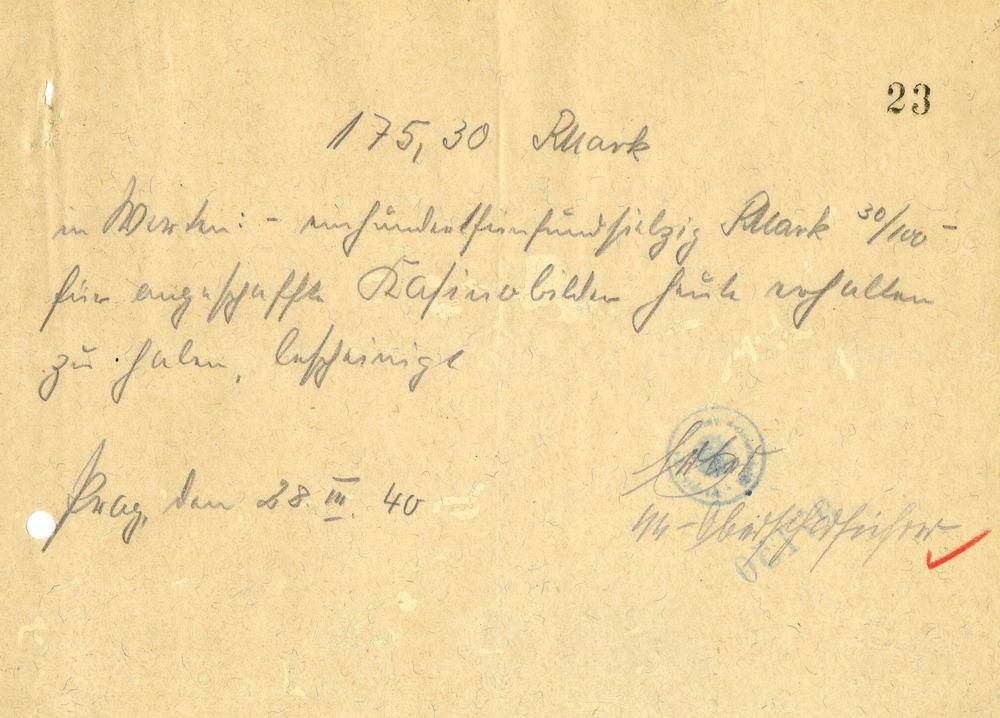 23
175,30 RMark
in Worten: - einhundertfünfundsiebzig RMark 30/100 -
für angeschaffte Kasinobilder heute erhalten
zu haben, bescheinigt
Prag, den 28. III. 40
SS-Oberscharführer